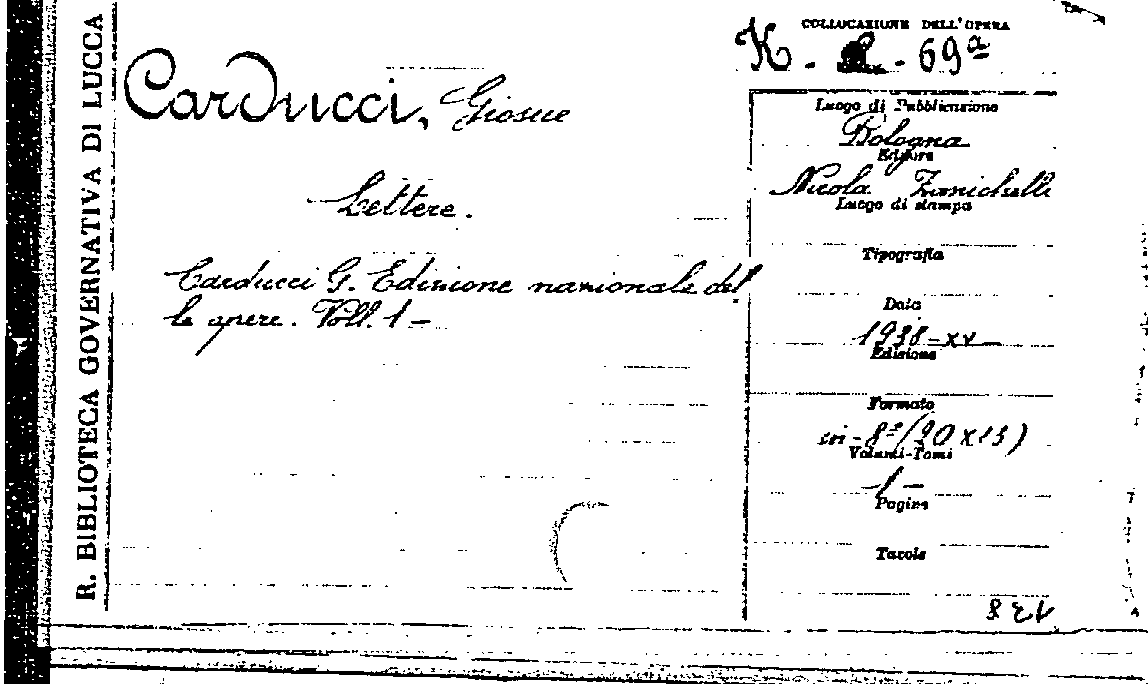 R. BIBLIOTECA GOVERNATIVA DI LUCCA
COLLOCAZIONE DELL'OPERA
K. - - 69ª
Carducci, Giosue
Lettere.
Carducci G. Edizione nazionale del
le opere. Voll. 1 –
Luogo di Pubblicazione
Bologna
Editore
Nicola Zanichelli
Luogo di stampa
Tipografia
Data
1938-XV
Edizione
Formato
in-8º (20x13)
Volumi-Tomi
1 –
Pagine
Tavole